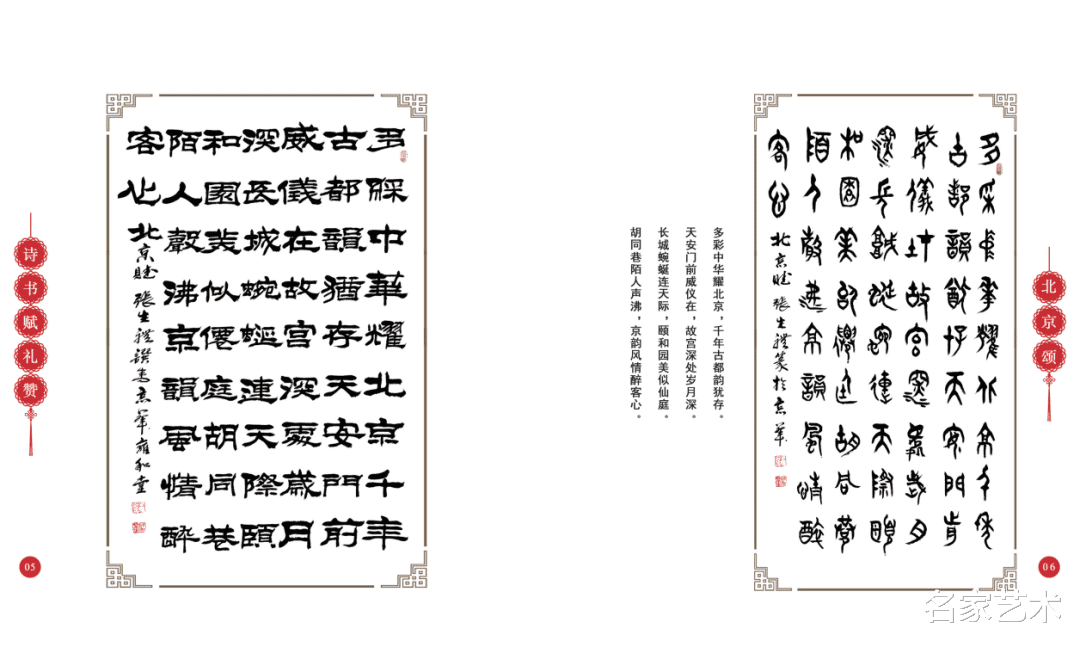 诗书赋礼赞
05
多綵中華耀北京千年
古都韻猶存天安門前
威儀在故宮深處歲月
深長城蜿蜒連天際頤
和園美似僊庭胡同巷
陌人聲沸京韻風情醉
客心 北京賦 張生禮撰書京華雍和堂
多采中華耀北京千年
古都韻猶存天安門前
威儀在故宮深處歲月
深長城蜿蜒連天際頤
和園美似僊庭胡同巷
陌人聲沸京韻風情醉
客心 北京賦 張生禮篆於京華
多彩中华耀北京，千年古都韵犹存。
天安门前威仪在，故宫深处岁月深。
长城蜿蜒连天际，颐和园美似仙庭。
胡同巷陌人声沸，京韵风情醉客心。
北京颂
06
名家艺术